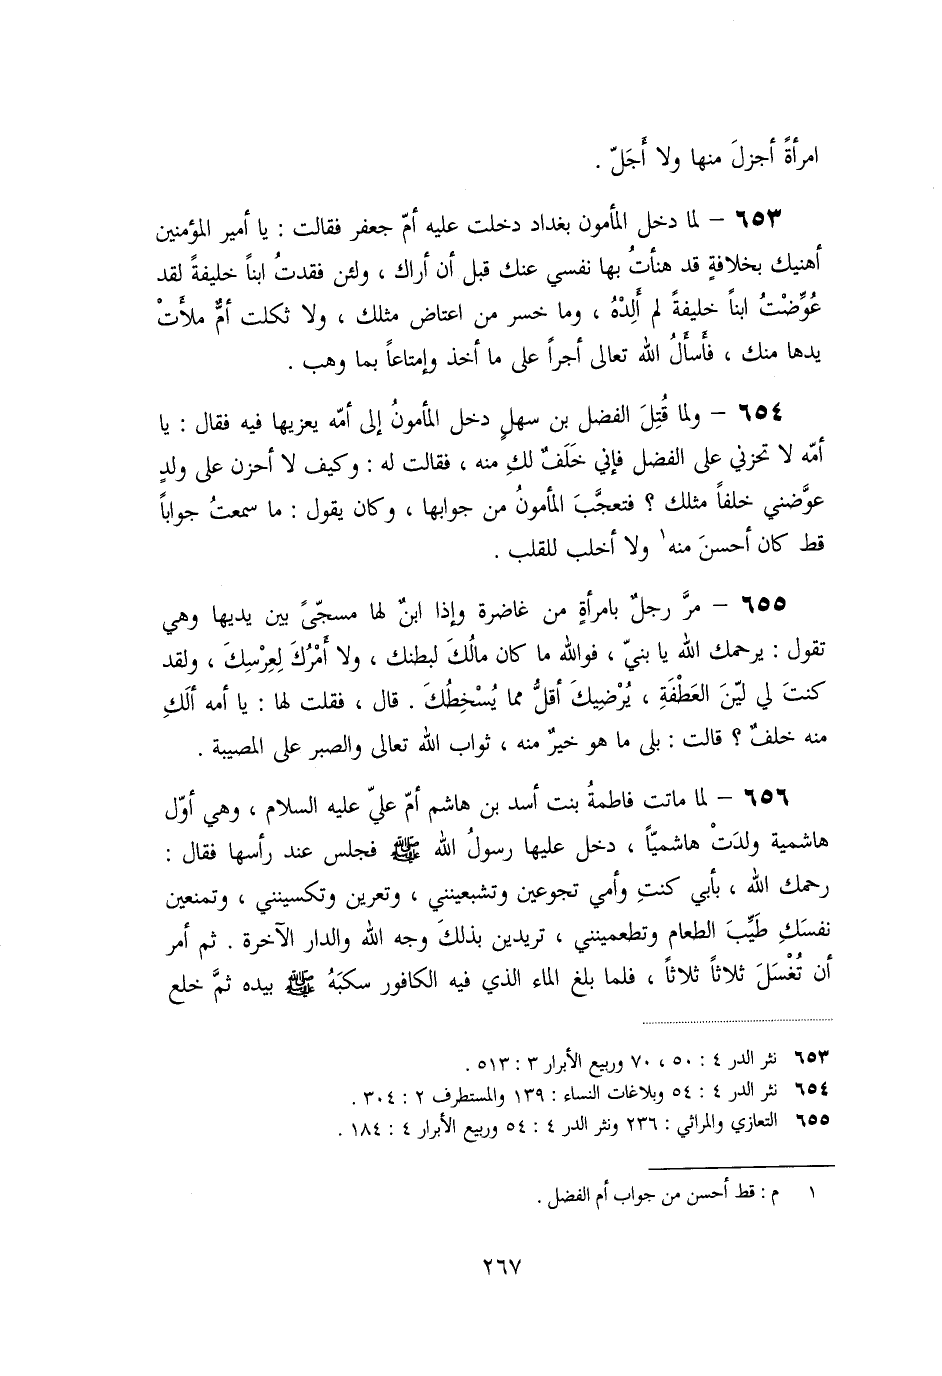 امرأةً أجزلَ منها ولا أَجَلّ .
٦٥٣ – لما دخل المأمون بغداد دخلت عليه أمّ جعفر فقالت : يا أمير المؤمنين
أهنيك بخلافةٍ قد هنأتُ بها نفسي عنك قبل أن أراك ، ولئن فقدتُ ابناً خليفةً لقد
عُوِّضْتُ ابناً خليفةً لم أَلِدْهُ ، وما خسر من اعتاض مثلك ، ولا ثكلت أمٌّ ملأَتْ
يدها منك ، فأَسأَلُ الله تعالى أجراً على ما أخذ وإمتاعاً بما وهب .
٦٥٤ – ولما قُتِلَ الفضل بن سهلٍ دخل المأمونُ إلى أمّه يعزيها فيه فقال : يا
أمّه لا تحزني على الفضل فإني خَلَفٌ لكِ منه ، فقالت له : وكيف لا أحزن على ولدٍ
عوَّضني خلفاً مثلك ؟ فتعجَّبَ المأمونُ من جوابها ، وكان يقول : ما سمعتُ جواباً
قط كان أحسنَ منه١ ولا أخلب للقلب .
٦٥٥ – مرَّ رجلٌ بامرأةٍ من غاضرة وإذا ابنٌ لها مسجّىً بين يديها وهي
تقول : يرحمك الله يا بنيّ ، فوالله ما كان مالُكَ لبطنك ، ولا أَمْرُكَ لِعِرْسِكَ ، ولقد
كنتَ لي ليّنَ العَطْفَةِ ، يُرْضِيكَ أقلُّ مما يُسْخِطُكَ . قال ، فقلت لها : يا أمه ألَكِ
منه خلفٌ ؟ قالت : بلى ما هو خيرٌ منه ، ثواب الله تعالى والصبر على المصيبة .
٦٥٦ – لما ماتت فاطمةُ بنت أسد بن هاشم أمّ عليّ عليه السلام ، وهي أوّل
هاشمية ولدَتْ هاشميّاً ، دخل عليها رسولُ الله ﷺ فجلس عند رأسها فقال :
رحمك الله ، بأبي كنتِ وأمي تجوعين وتشبعينني ، وتعرين وتكسينني ، وتمنعين
نفسَكِ طَيِّبَ الطعام وتطعمينني ، تريدين بذلكَ وجه الله والدار الآخرة . ثم أمر
أن تُغْسَلَ ثلاثاً ثلاثاً ، فلما بلغ الماء الذي فيه الكافور سكبَهُ ﷺ بيده ثمَّ خلع
٦٥٣ نثر الدر ٤ : ٥٠ ، ٧٠ وربيع الأبرار ٣ : ٥١٣ .
٦٥٤ نثر الدر ٤ : ٥٤ وبلاغات النساء : ١٣٩ والمستطرف ٢ : ٣٠٤ .
٦٥٥ التعازي والمراثي : ٢٣٦ ونثر الدر ٤ : ٥٤ وربيع الأبرار ٤ : ١٨٤ .
١ م : قط أحسن من جواب أم الفضل .
٢٦٧